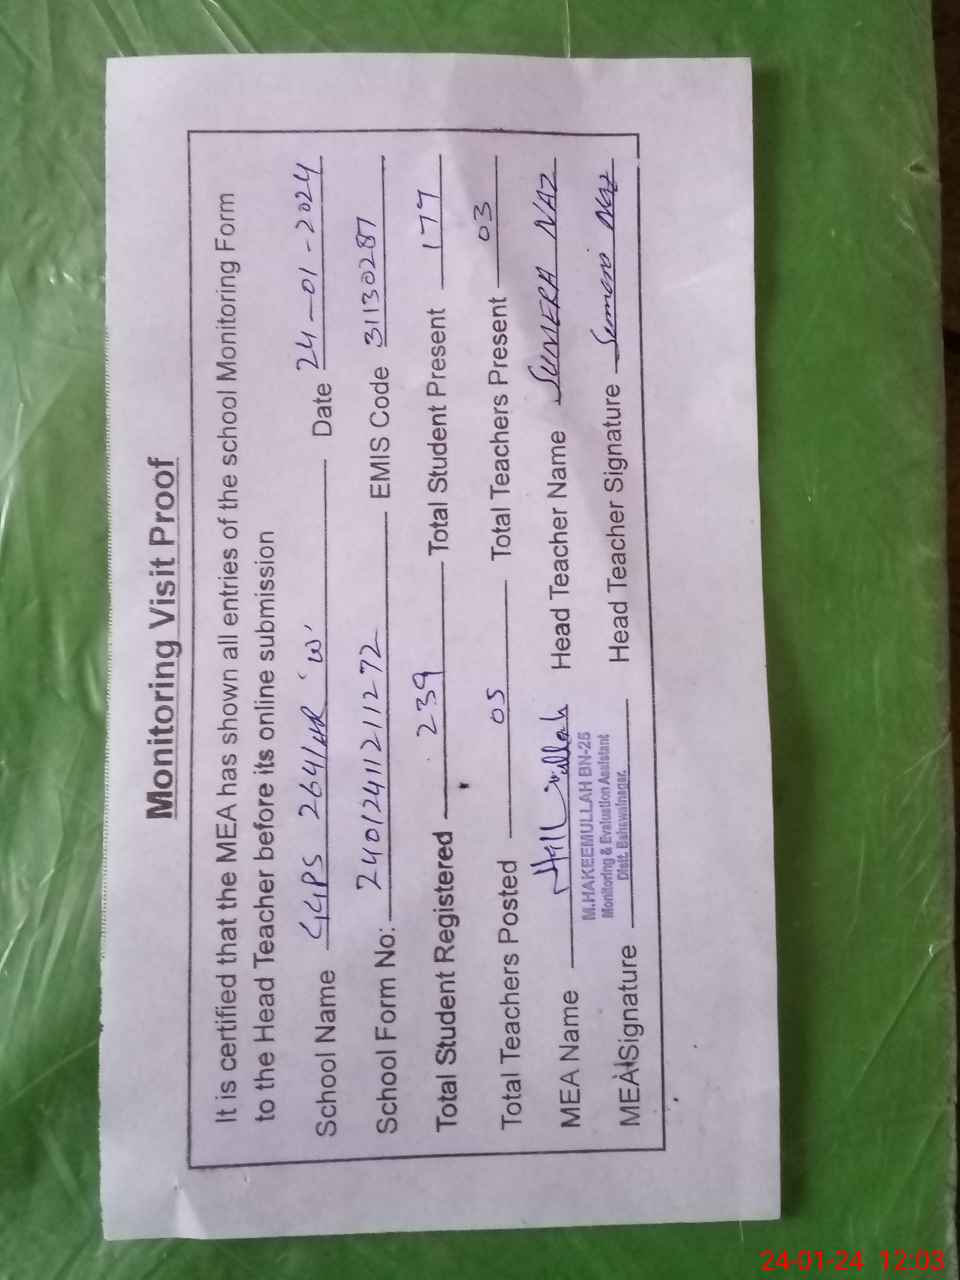 Monitoring Visit Proof
It is certified that the MEA has shown all entries of the school Monitoring Form
to the Head Teacher before its online submission
School Name GGPS 264/HR 'W' Date 24-01-2024
School Form No: 24012411211272 EMIS Code 31130287
Total Student Registered 239 Total Student Present 177
Total Teachers Posted 05 Total Teachers Present 03
MEA Name Head Teacher Name SUMERA NAZ
M.HAKEEMULLAH BN-25
Monitoring & Evaluation Assistant
Distt. Bahawalnagar.
MEA Signature Head Teacher Signature Sumera Naz
24-01-24 12:03